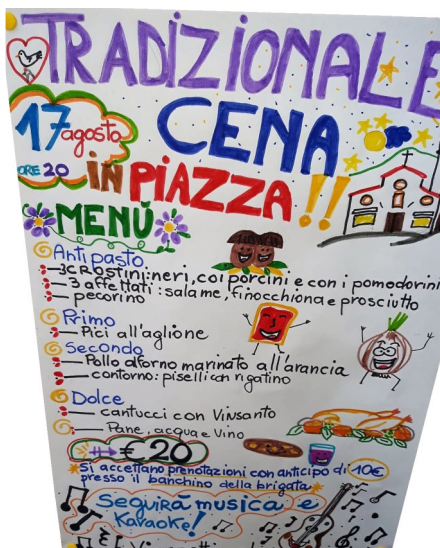 TRADIZIONALE
17 agosto
CENA
ORE 20
IN PIAZZA!!
MENÙ
Antipasto
3 CROSTINI: neri, coi porcini e con i pomodorini
3 affettati: salame, finocchiona e prosciutto
pecorino
Primo
Pici all'aglione
Secondo
Pollo al forno marinato all'arancia
contorno: piselli con rigatino
Dolce
cantucci con Vinsanto
Pane, acqua e Vino
€ 20
*Si accettano prenotazioni con anticipo di 10€
presso il banchino della brigata*
Seguirà musica e
Karaoke!